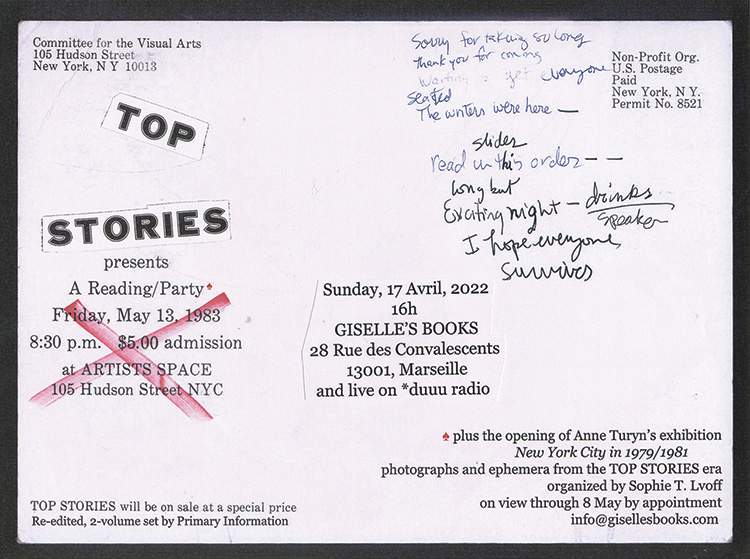 Committee for the Visual Arts
105 Hudson Street
New York, N Y 10013
Sorry for taking so long
thank you for coming
waiting to get everyone
seated
The writers were here —
slides
read in this order — —
long but
Exciting night — drinks
speaker
I hope everyone
survives
Non-Profit Org.
U.S. Postage
Paid
New York, N. Y.
Permit No. 8521
TOP
STORIES
presents
A Reading/Party♠
Friday, May 13, 1983
8:30 p.m. $5.00 admission
at ARTISTS SPACE
105 Hudson Street NYC
Sunday, 17 Avril, 2022
16h
GISELLE'S BOOKS
28 Rue des Convalescents
13001, Marseille
and live on *duuu radio
♠ plus the opening of Anne Turyn's exhibition
New York City in 1979/1981
photographs and ephemera from the TOP STORIES era
organized by Sophie T. Lvoff
on view through 8 May by appointment
info@gisellesbooks.com
TOP STORIES will be on sale at a special price
Re-edited, 2-volume set by Primary Information